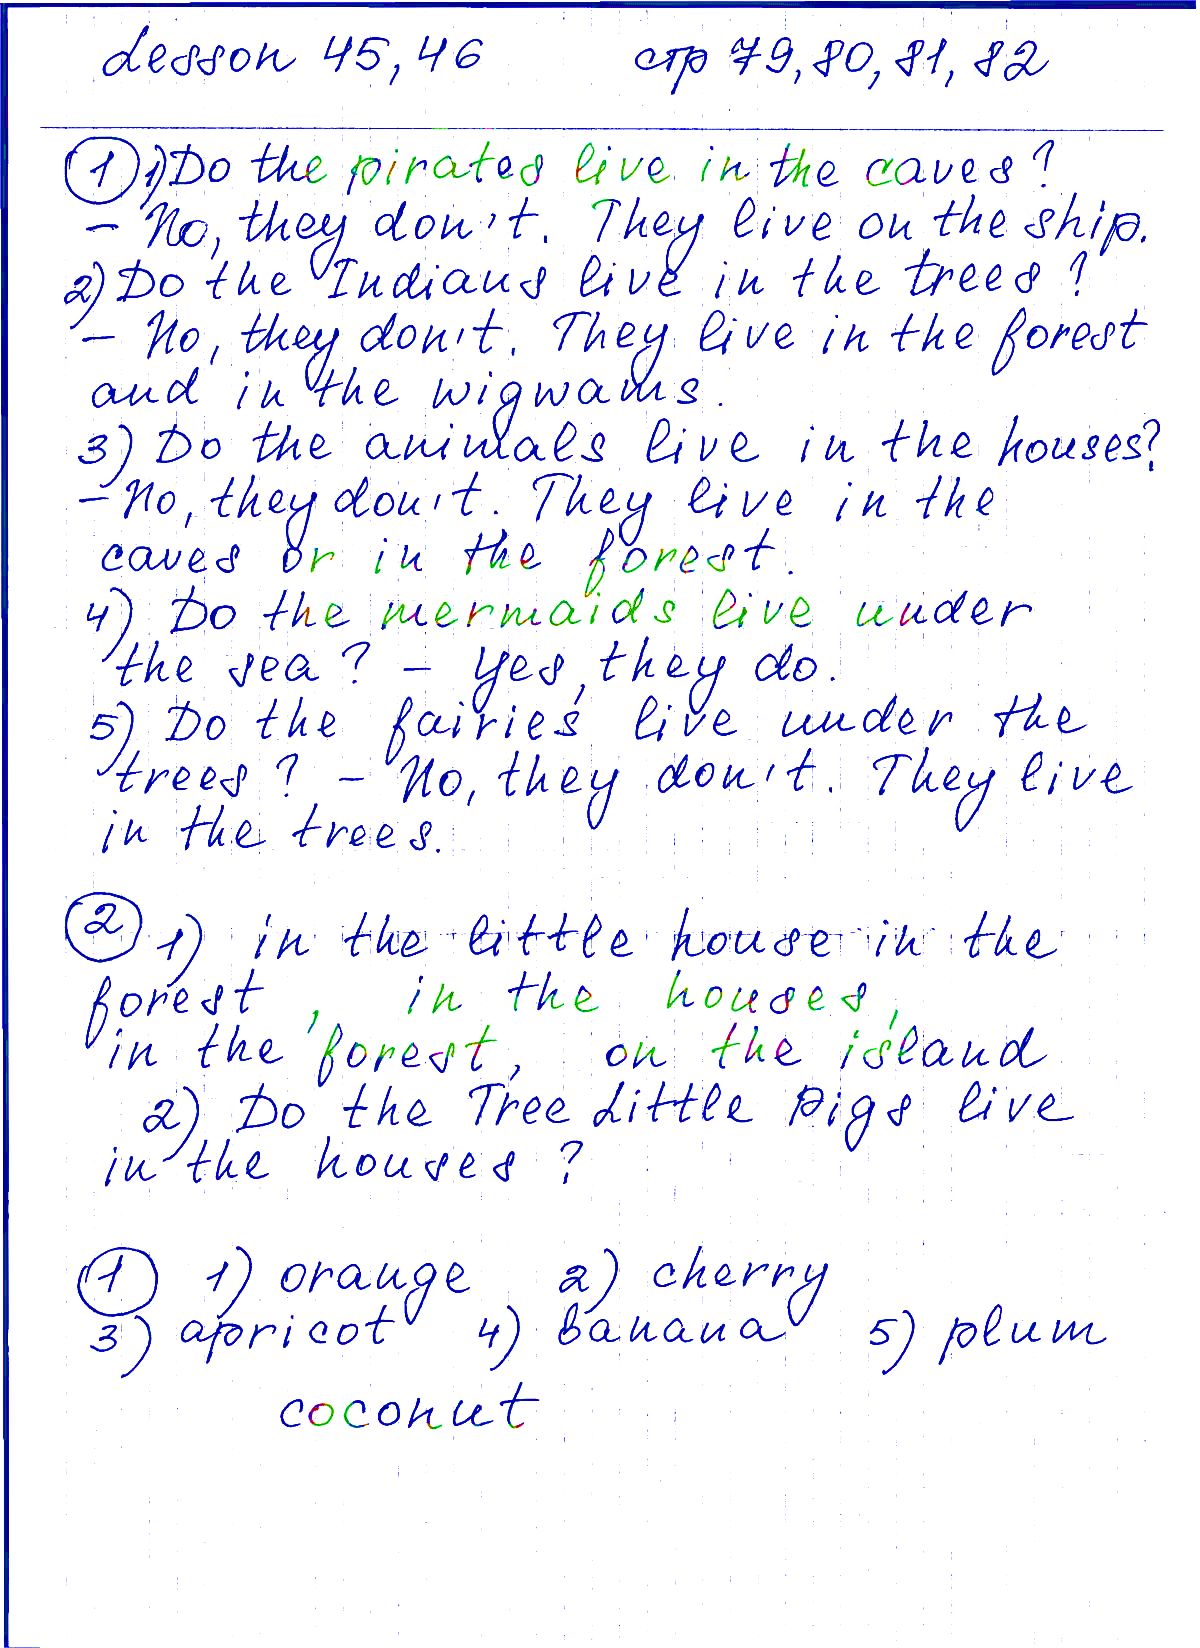 Lesson 45, 46 стр 79, 80, 81, 82
1 1) Do the pirates live in the caves?
- No, they don't. They live on the ship.
2) Do the Indians live in the trees?
- No, they don't. They live in the forest
and in the wigwams.
3) Do the animals live in the houses?
- No, they don't. They live in the
caves or in the forest.
4) Do the mermaids live under
the sea? - Yes, they do.
5) Do the fairies live under the
trees? - No, they don't. They live
in the trees.
2 1) in the little house in the
forest, in the houses,
in the forest, on the island
2) Do the Tree Little Pigs live
in the houses?
1 1) orange 2) cherry
3) apricot 4) banana 5) plum
coconut